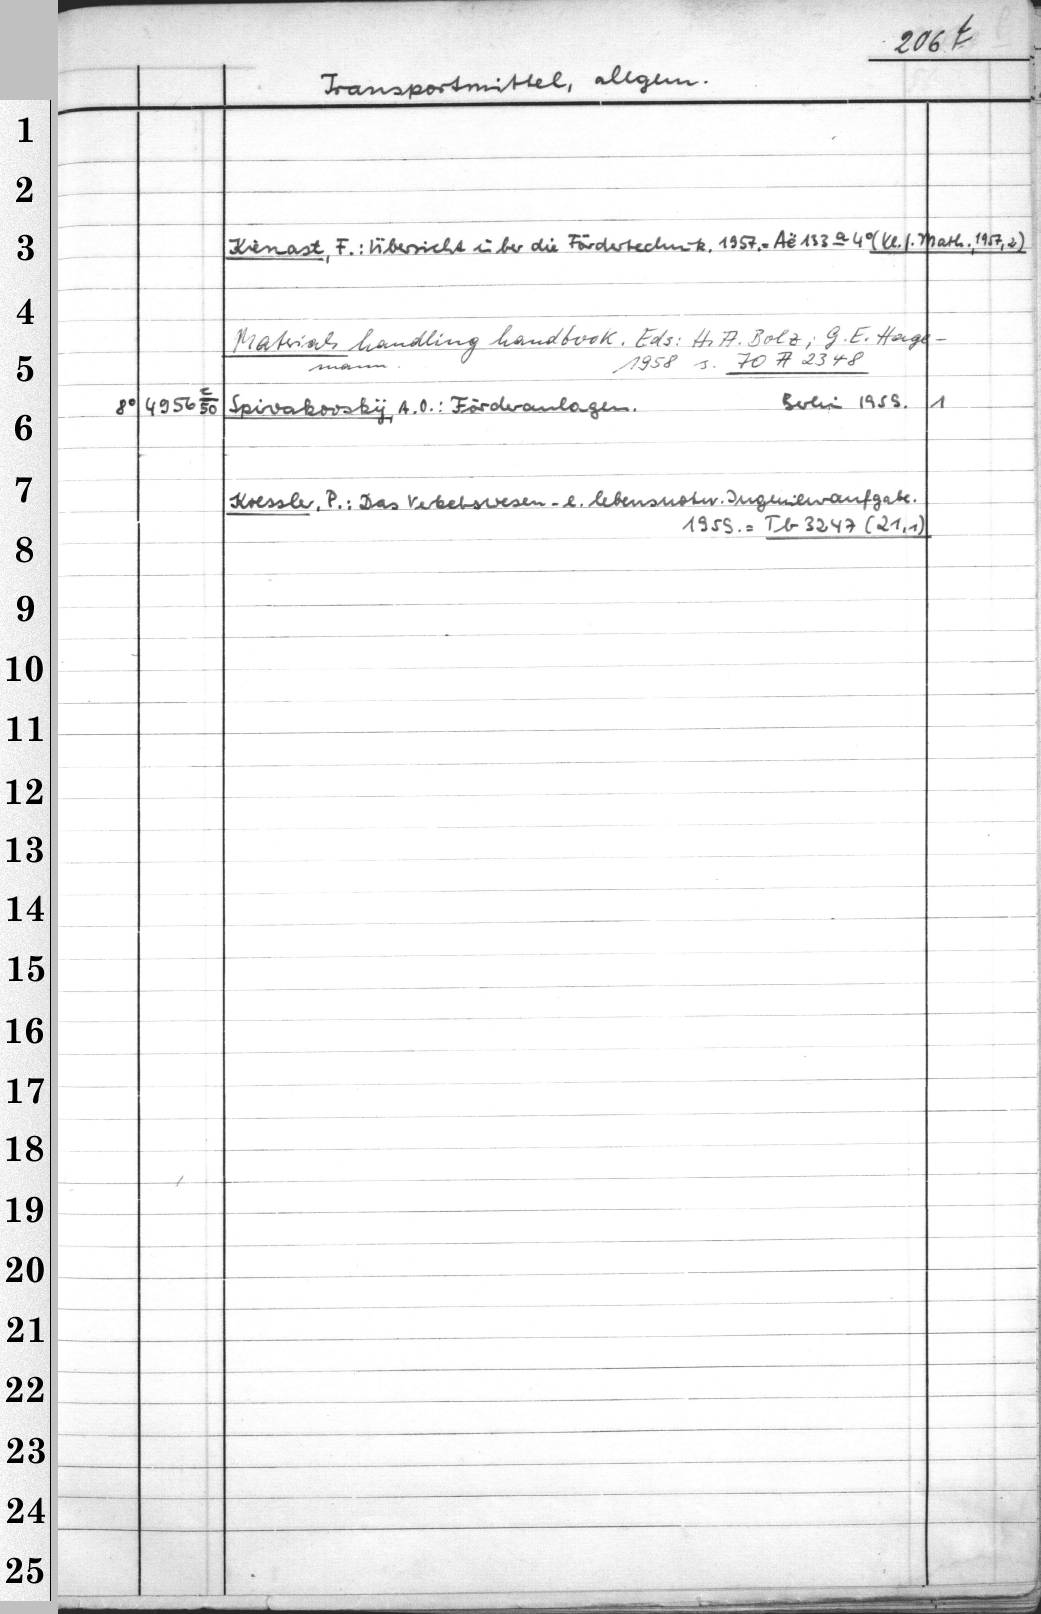 206 t
Transportmittel, allgem.
1
2
3 Kienast, F.: Übersicht über die Fördertechnik. 1957. = Aë 133 a 4° (Kl. f. Math., 1957, 2)
4
Materials handling handbook. Eds: H. A. Bolz; G. E. Hage-
5 mann. 1958 s. 70 A 2348
8° 4956 c/50 Spivakovskÿ, A. O.: Förderanlagen. Berlin 1959. 1
6
7 Koessler, P.: Das Verkehrswesen - e. lebensnotw. Ingenieuraufgabe.
1959. = Tb 3247 (21,1)
8
9
10
11
12
13
14
15
16
17
18
19
20
21
22
23
24
25